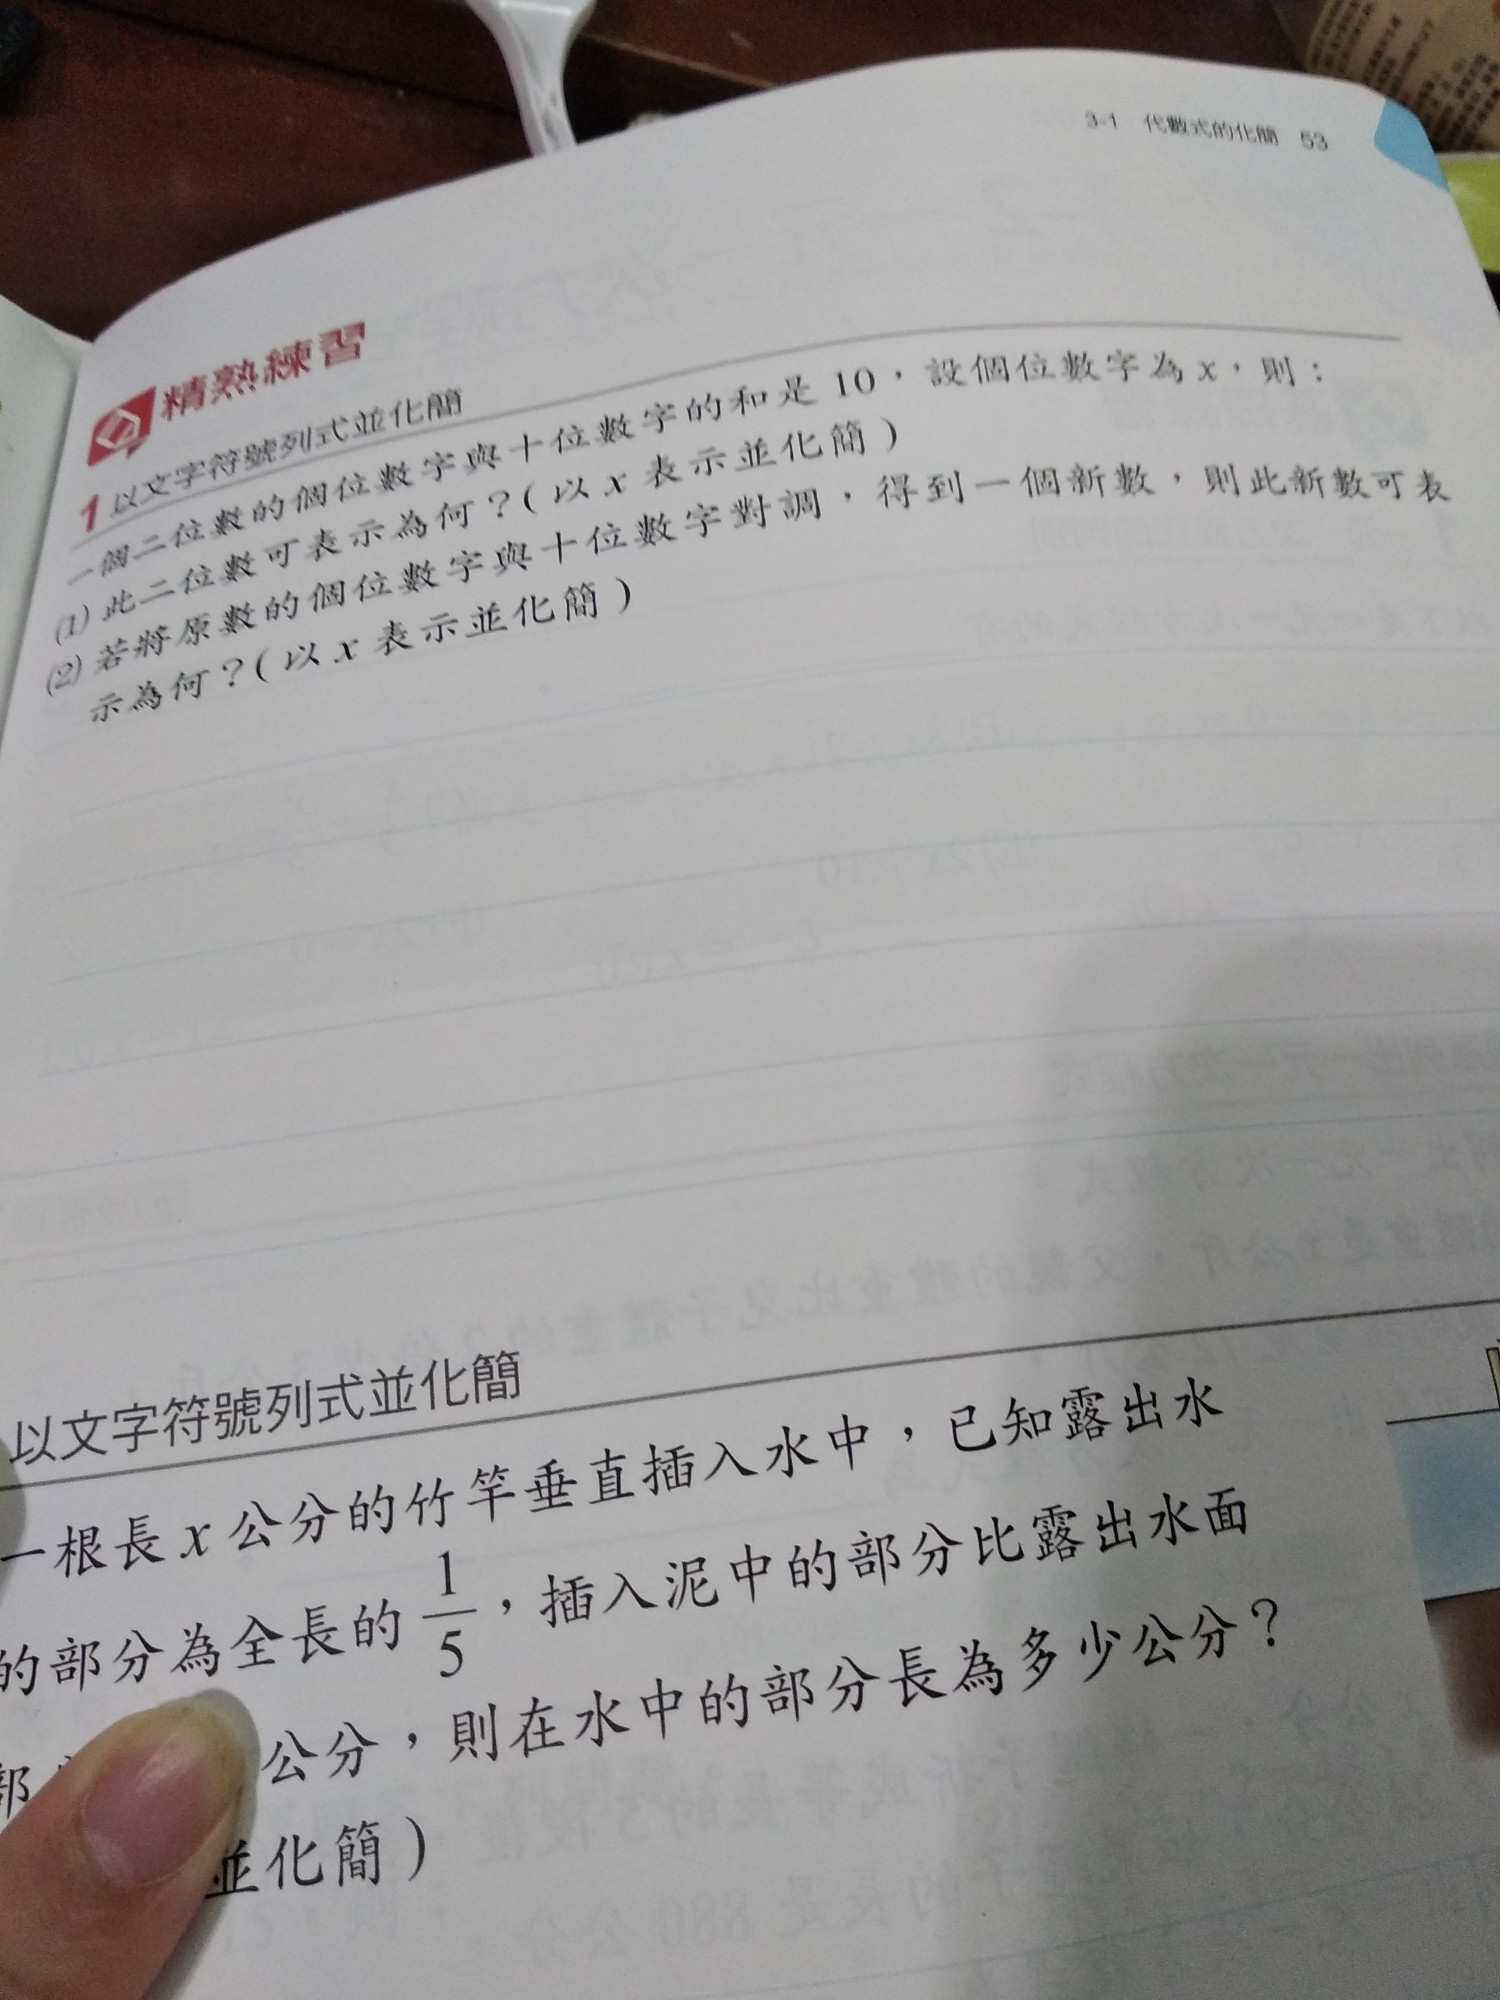 3-1 代數式的化簡 53
精熟練習
1 以文字符號列式並化簡
一個二位數的個位數字與十位數字的和是 10，設個位數字為 x，則：
(1) 此二位數可表示為何？( 以 x 表示並化簡 )
(2) 若將原數的個位數字與十位數字對調，得到一個新數，則此新數可表
示為何？( 以 x 表示並化簡 )
以文字符號列式並化簡
一根長 x 公分的竹竿垂直插入水中，已知露出水
的部分為全長的 1/5，插入泥中的部分比露出水面
部 公分，則在水中的部分長為多少公分？
並化簡 )